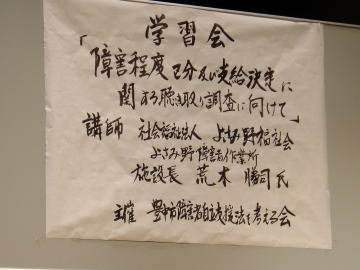 学習会
「障害程度区分及び支給決定に
関する聴き取り調査に向けて」
講師 社会福祉法人 よさみ野福祉会
よさみ野障害者作業所
施設長 荒木 勝司氏
主催 豊中市障害者自立支援法を考える会